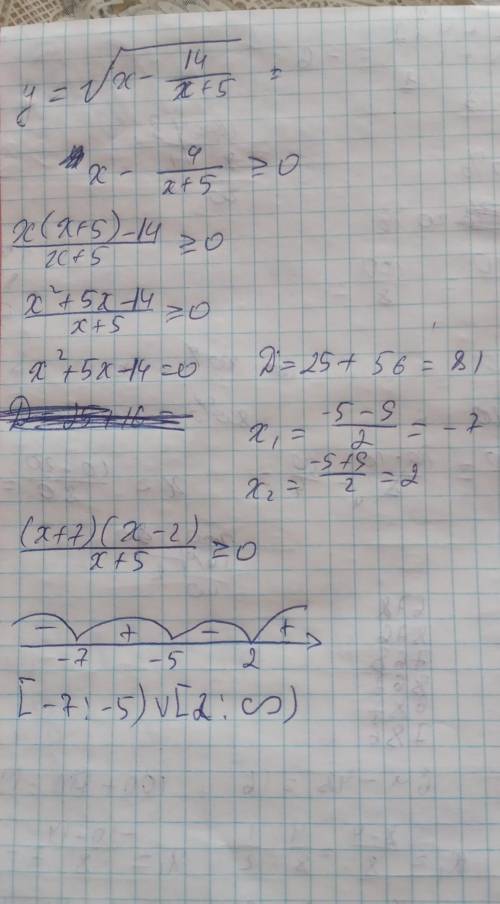 y = √(x - 14/(x+5)) =
x - 4/(x+5) ≥ 0
(x(x+5)-14)/(x+5) ≥ 0
(x²+5x-14)/(x+5) ≥ 0
x²+5x-14=0 D=25+56=81
x₁ = (-5-9)/2 = -7
x₂ = (-5+9)/2 = 2
((x+7)(x-2))/(x+5) ≥ 0
- + - +
-7 -5 2
[-7; -5) ∪ [2; ∞)